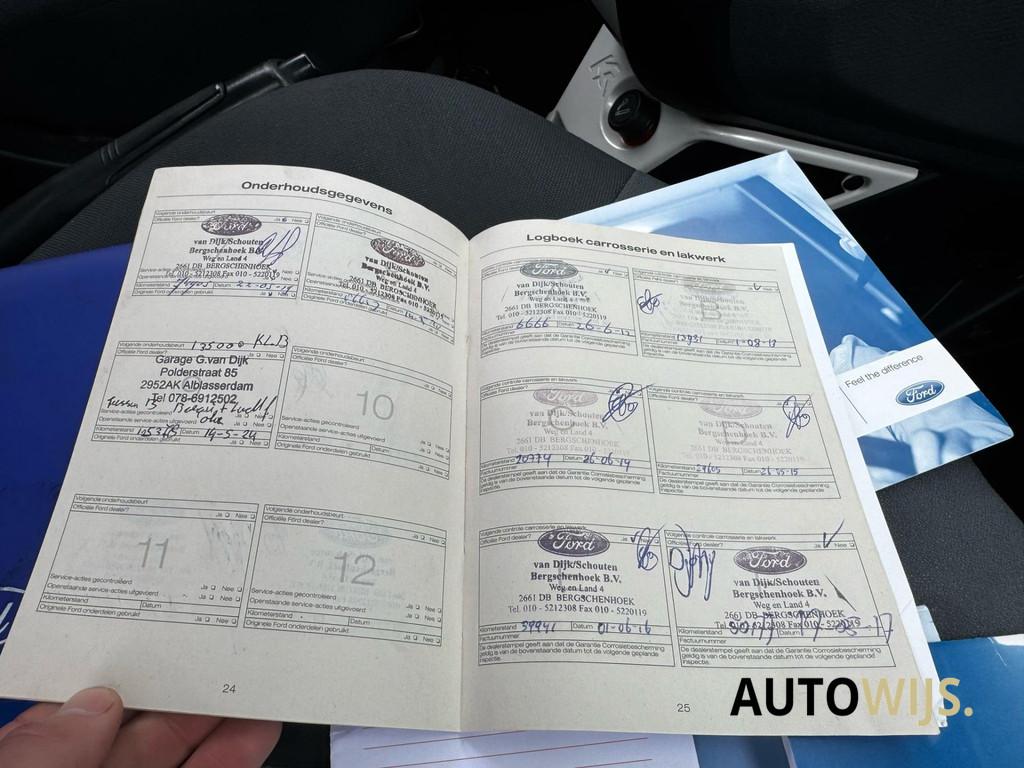 Onderhoudsgegevens
Volgende onderhoudsbeurt
Officiële Ford dealer? Ja Nee
Ford
van Dijk/Schouten
Bergschenhoek B.V.
Weg en Land 4
2661 DB BERGSCHENHOEK
Tel. 010 - 5212308 Fax 010 - 5220119
Kilometerstand Datum
Originele Ford onderdelen gebruikt
Ford
van Dijk/Schouten
Bergschenhoek B.V.
Weg en Land 4
2661 DB BERGSCHENHOEK
Tel. 010 - 5212308 Fax 010 - 5220119
Originele Ford onderdelen gebruikt
Volgende onderhoudsbeurt 135000 KLB
Officiële Ford dealer? Ja Nee
Garage G.van Dijk
Polderstraat 85
2952AK Alblasserdam
Tel 078-6912502
Service-acties gecontroleerd Ja Nee
Openstaande service-acties uitgevoerd Ja Nee
Kilometerstand Datum 14-5-24
Originele Ford onderdelen gebruikt Ja Nee
Volgende onderhoudsbeurt
Officiële Ford dealer? Ja Nee
10
Service-acties gecontroleerd Ja Nee
Openstaande service-acties uitgevoerd Ja Nee
Kilometerstand Datum
Originele Ford onderdelen gebruikt Ja Nee
Volgende onderhoudsbeurt
Officiële Ford dealer? Ja Nee
11
Service-acties gecontroleerd Ja Nee
Openstaande service-acties uitgevoerd Ja Nee
Kilometerstand Datum
Originele Ford onderdelen gebruikt Ja Nee
Volgende onderhoudsbeurt
Officiële Ford dealer? Ja Nee
12
Service-acties gecontroleerd Ja Nee
Openstaande service-acties uitgevoerd Ja Nee
Kilometerstand Datum
Originele Ford onderdelen gebruikt Ja Nee
24
Logboek carrosserie en lakwerk
Officiële Ford dealer?
Ford
van Dijk/Schouten
Bergschenhoek B.V.
Weg en Land 4
2661 DB BERGSCHENHOEK
Tel. 010 - 5212308 Fax 010 - 5220119
Kilometerstand 6666 Datum 26-6-12
Factuurnummer
De dealerstempel geeft aan dat de Garantie Corrosiebescherming
geldig is van de bovenstaande datum tot de volgende geplande
inspectie.
van Dijk/Schouten
Bergschenhoek B.V.
Weg en Land 4
Datum 1-08-13
Factuurnummer
De dealerstempel geeft aan dat de Garantie Corrosiebescherming
geldig is van de bovenstaande datum tot de volgende geplande
inspectie.
Volgende controle carrosserie en lakwerk
Officiële Ford dealer?
Ford
van Dijk/Schouten
Bergschenhoek B.V.
Weg en Land 4
2661 DB BERGSCHENHOEK
Tel. 010 - 5212308 Fax 010 - 5220119
Kilometerstand 20774 Datum 26-06-14
Factuurnummer
De dealerstempel geeft aan dat de Garantie Corrosiebescherming
geldig is van de bovenstaande datum tot de volgende geplande
inspectie.
Volgende controle carrosserie en lakwerk
Officiële Ford dealer?
van Dijk/Schouten
Bergschenhoek B.V.
Weg en Land 4
2661 DB BERGSCHENHOEK
Tel. 010 - 5212308 Fax 010 - 5220119
Kilometerstand 29605 Datum 26-05-15
Factuurnummer
De dealerstempel geeft aan dat de Garantie Corrosiebescherming
geldig is van de bovenstaande datum tot de volgende geplande
inspectie.
Volgende controle carrosserie en lakwerk
Officiële Ford dealer? Ja Nee
Ford
van Dijk/Schouten
Bergschenhoek B.V.
Weg en Land 4
2661 DB BERGSCHENHOEK
Tel. 010 - 5212308 Fax 010 - 5220119
Kilometerstand 39941 Datum 01-06-16
Factuurnummer
De dealerstempel geeft aan dat de Garantie Corrosiebescherming
geldig is van de bovenstaande datum tot de volgende geplande
inspectie.
Volgende controle carrosserie en lakwerk
Officiële Ford dealer? Ja Nee
Ford
van Dijk/Schouten
Bergschenhoek B.V.
Weg en Land 4
2661 DB BERGSCHENHOEK
Tel. 010 - 5212308 Fax 010 - 5220119
Kilometerstand Datum
Factuurnummer
De dealerstempel geeft aan dat de Garantie Corrosiebescherming
geldig is van de bovenstaande datum tot de volgende geplande
inspectie.
25
Feel the difference
Ford
Ka
AUTOWIJS.